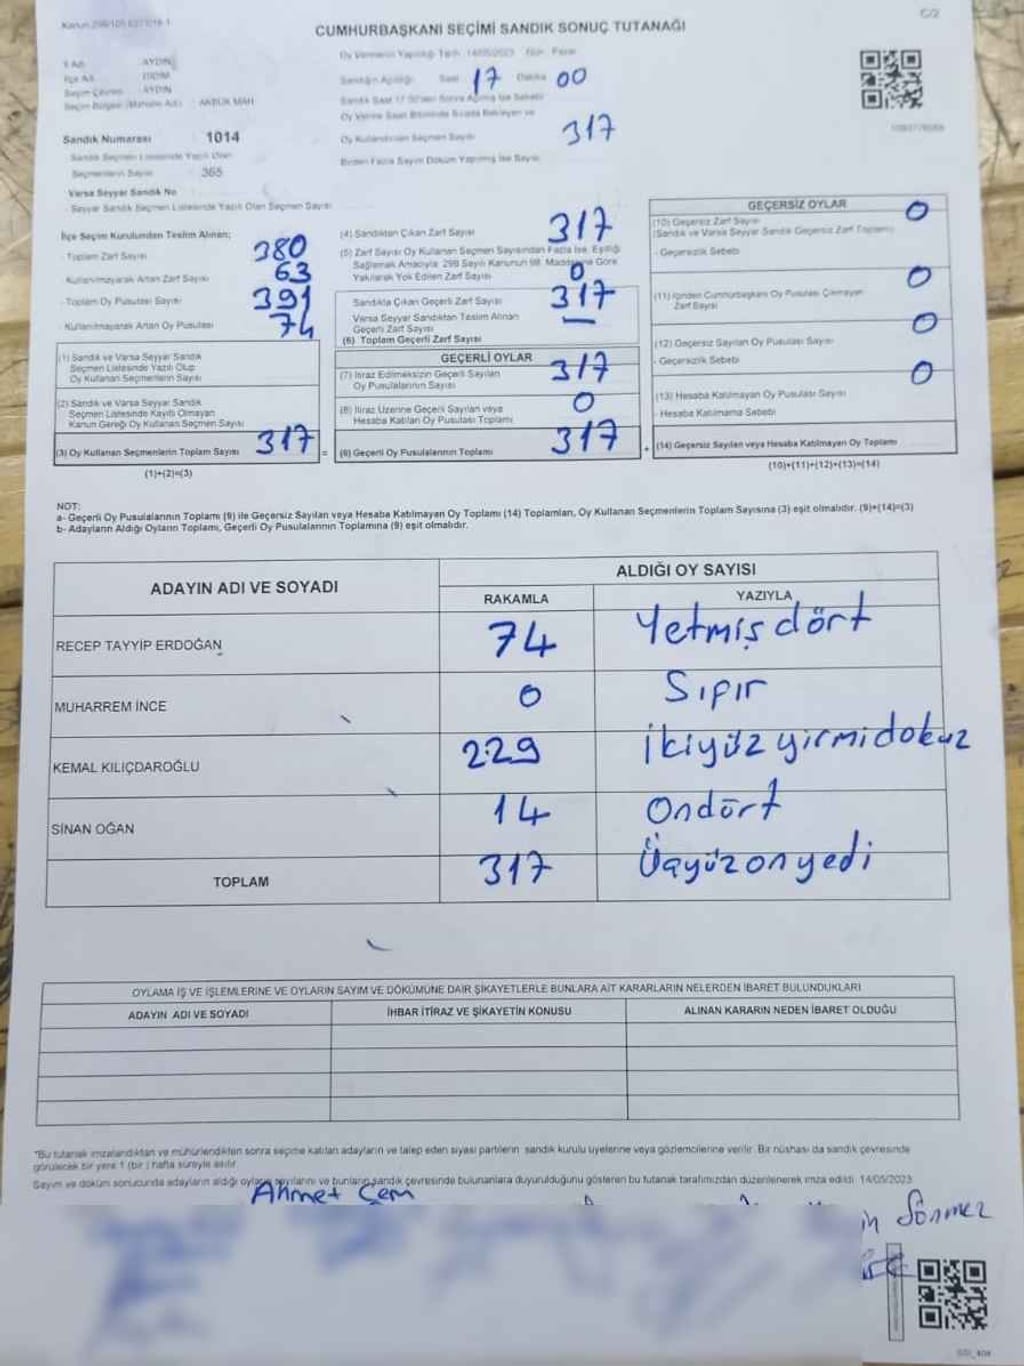 C/2
CUMHURBAŞKANI SEÇİMİ SANDIK SONUÇ TUTANAĞI
Oy Vermenin Yapıldığı Tarih 14/05/2023 Gün Pazar
İl Adı AYDIN
İlçe Adı DİDİM
Seçim Çevresi AYDIN
Seçim Bölgesi (Mahalle Adı) AKBÜK MAH
Sandığın Açıldığı Saat 17 Dakika 00
Sandık Numarası 1014
Sandık Seçmen Listesinde Yazılı Olan
Seçmenlerin Sayısı 365
Oy Kullandırılan Seçmen Sayısı 317
Birden Fazla Sayım Döküm Yapılmış İse Sayısı
Varsa Seyyar Sandık No
- Seyyar Sandık Seçmen Listesinde Yazılı Olan Seçmen Sayısı
İlçe Seçim Kurulundan Teslim Alınan;
- Toplam Zarf Sayısı 380
- Kullanılmayarak Artan Zarf Sayısı 63
- Toplam Oy Pusulası Sayısı 391
- Kullanılmayarak Artan Oy Pusulası 74
(1) Sandık ve Varsa Seyyar Sandık
Seçmen Listesinde Yazılı Olup
Oy Kullanan Seçmenlerin Sayısı
(2) Sandık ve Varsa Seyyar Sandık
Seçmen Listesinde Kayıtlı Olmayan
Kanun Gereği Oy Kullanan Seçmen Sayısı
(3) Oy Kullanan Seçmenlerin Toplam Sayısı 317 =
(1)+(2)=(3)
(4) Sandıktan Çıkan Zarf Sayısı 317
(5) Zarf Sayısı Oy Kullanan Seçmen Sayısından Fazla İse, Eşitliği
Sağlamak Amacıyla 298 Sayılı Kanunun 98. Maddesine Göre
Yakılarak Yok Edilen Zarf Sayısı 0
Sandıkta Çıkan Geçerli Zarf Sayısı 317
Varsa Seyyar Sandıktan Teslim Alınan
Geçerli Zarf Sayısı —
(6) Toplam Geçerli Zarf Sayısı
GEÇERLİ OYLAR
(7) İtiraz Edilmeksizin Geçerli Sayılan
Oy Pusulalarının Sayısı 317
(8) İtiraz Üzerine Geçerli Sayılan veya
Hesaba Katılan Oy Pusulası Toplamı 0
(9) Geçerli Oy Pusulalarının Toplamı 317 +
GEÇERSİZ OYLAR
(10) Geçersiz Zarf Sayısı 0
(Sandık ve Varsa Seyyar Sandık Geçersiz Zarf Toplamı)
- Geçersizlik Sebebi
(11) İçinden Cumhurbaşkanı Oy Pusulası Çıkmayan
Zarf Sayısı 0
(12) Geçersiz Sayılan Oy Pusulası Sayısı 0
- Geçersizlik Sebebi
(13) Hesaba Katılmayan Oy Pusulası Sayısı 0
- Hesaba Katılmama Sebebi
(14) Geçersiz Sayılan veya Hesaba Katılmayan Oy Toplamı
(10)+(11)+(12)+(13)=(14)
NOT:
a- Geçerli Oy Pusulalarının Toplamı (9) ile Geçersiz Sayılan veya Hesaba Katılmayan Oy Toplamı (14) Toplamları, Oy Kullanan Seçmenlerin Toplam Sayısına (3) eşit olmalıdır. (9)+(14)=(3)
b- Adayların Aldığı Oyların Toplamı, Geçerli Oy Pusulalarının Toplamına (9) eşit olmalıdır.
ADAYIN ADI VE SOYADI
ALDIĞI OY SAYISI
RAKAMLA YAZIYLA
RECEP TAYYİP ERDOĞAN 74 Yetmiş dört
MUHARREM İNCE 0 Sıfır
KEMAL KILIÇDAROĞLU 229 İkiyüz yirmidokuz
SİNAN OĞAN 14 Ondört
TOPLAM 317 Üçyüz onyedi
OYLAMA İŞ VE İŞLEMLERİNE VE OYLARIN SAYIM VE DÖKÜMÜNE DAİR ŞİKAYETLERLE BUNLARA AİT KARARLARIN NELERDEN İBARET BULUNDUKLARI
ADAYIN ADI VE SOYADI İHBAR İTİRAZ VE ŞİKAYETİN KONUSU ALINAN KARARIN NEDEN İBARET OLDUĞU
*Bu tutanak imzalandıktan ve mühürlendikten sonra seçime katılan adayların ve talep eden siyasi partilerin sandık kurulu üyelerine veya gözlemcilerine verilir. Bir nüshası da sandık çevresinde
görülecek bir yere 1 (bir) hafta süreyle asılır.
Sayım ve döküm sonucunda adayların aldığı oyların sayılarını ve bunların sandık çevresinde bulunanlara duyurulduğunu gösteren bu tutanak tarafımızdan düzenlenerek imza edildi. 14/05/2023
Ahmet Cem
Sönmez